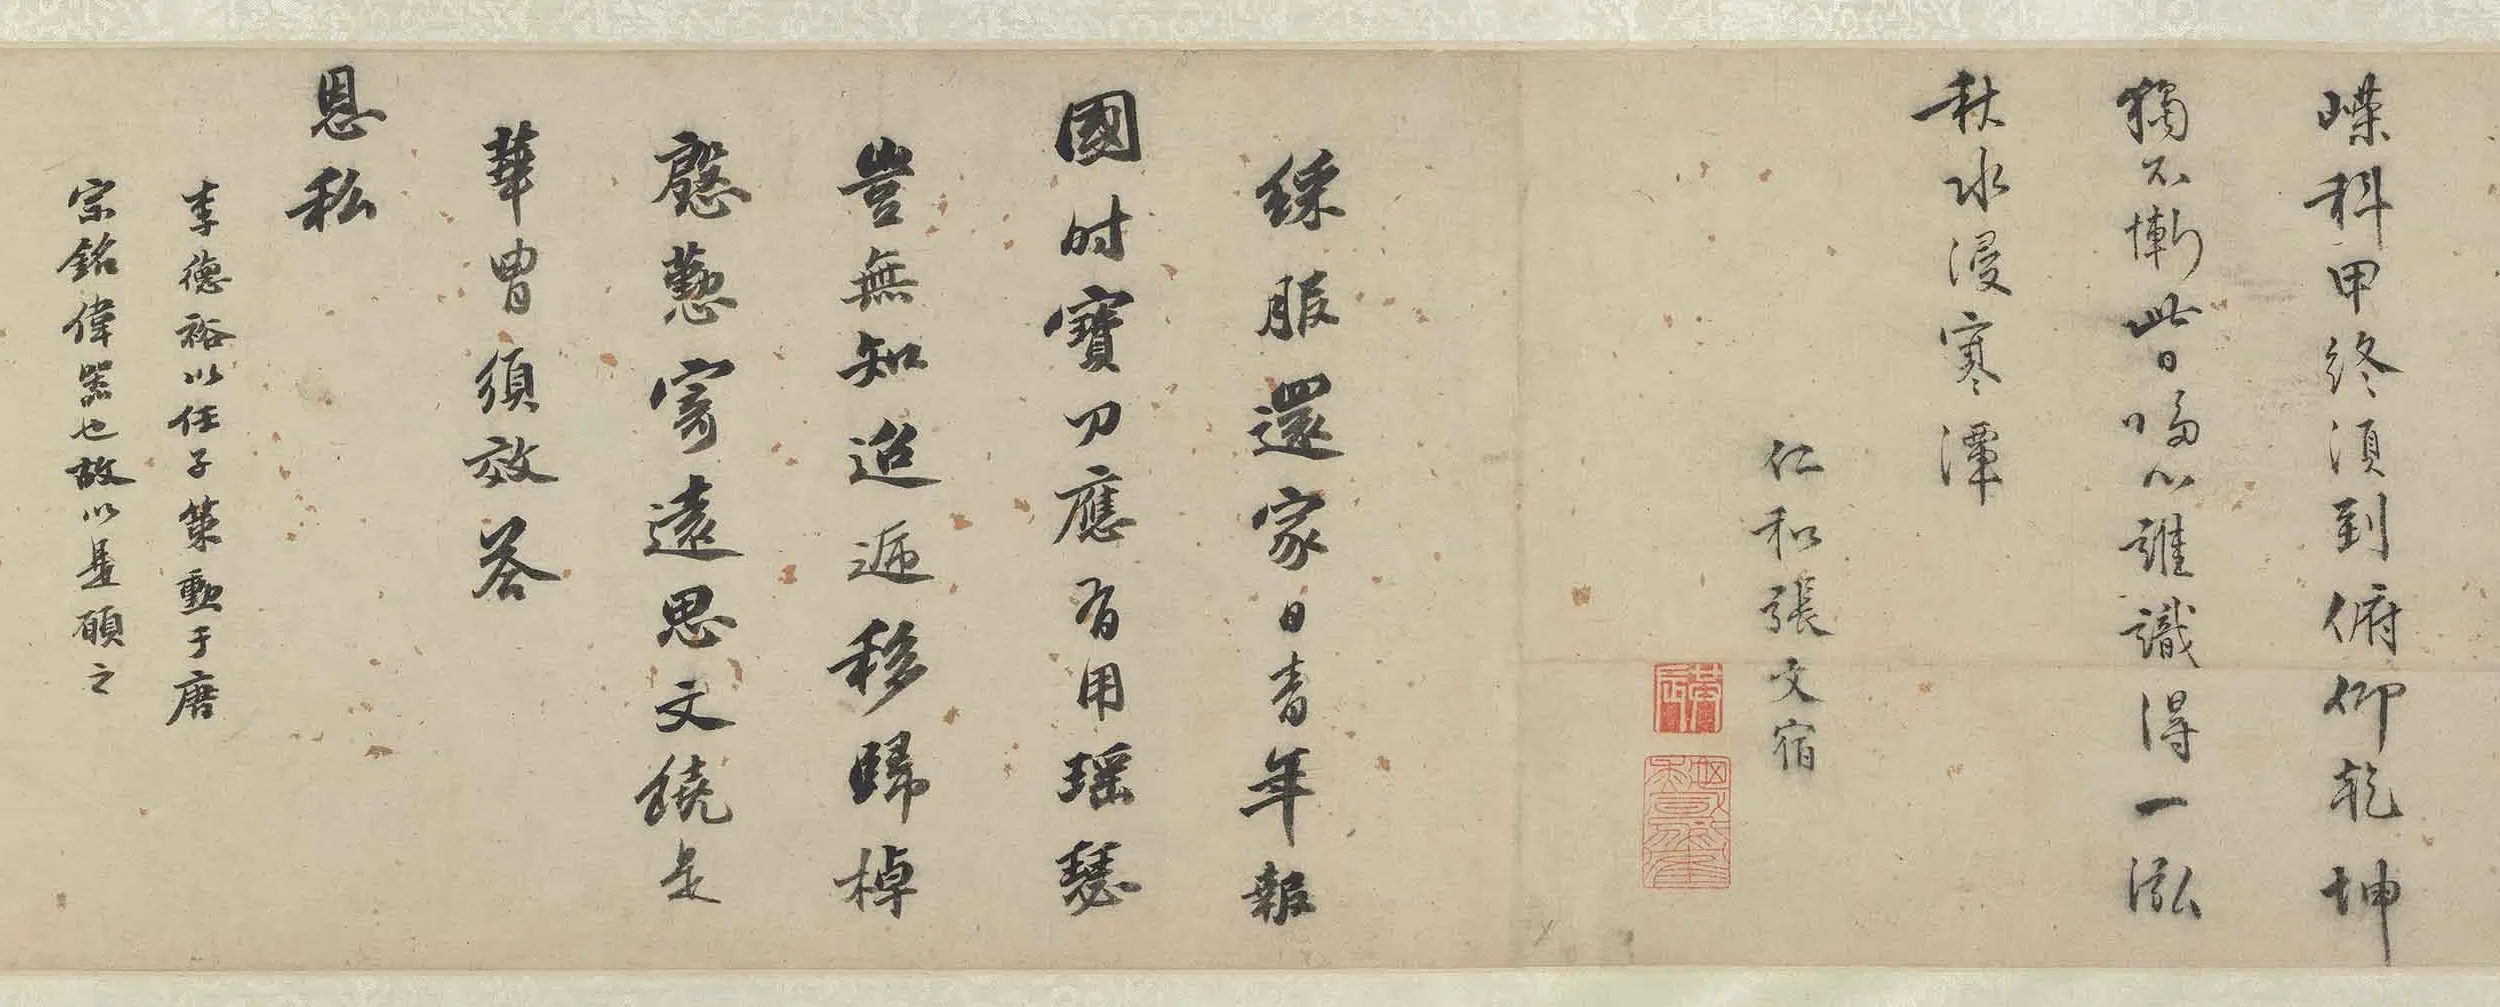 嶫科甲終須到俯仰乾坤
獨不慚此日鳴心誰識得一泓
秋水浸寒潭
仁和張文宿
綵服還家日青年報
國時寶刀應有用瑶瑟
豈無知迢遞移歸棹
慇懃寄遠思文饒是
華胄須效答
恩私
李德裕以任子策勳于唐
宗銘偉器也故以是頋之